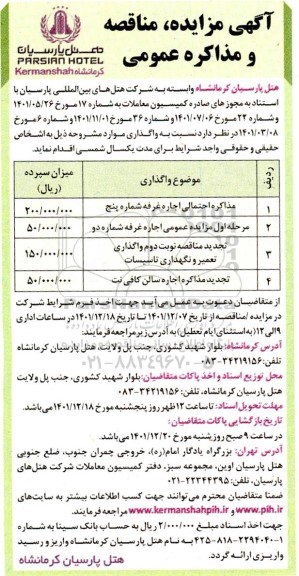 آگهی مزایده، مناقصه
و مذاکره عمومی
هتل پارسیان
PARSIAN HOTEL
Kermanshah کرمانشاه
هتل پارسیان کرمانشاه وابسته به شرکت هتل‌های بین‌المللی پارسیان با
استناد به مجوزهای صادره کمیسیون معاملات به شماره ۱۷ مورخ ۱۴۰۱/۰۵/۲۶
و شماره ۲۲ مورخ ۱۴۰۱/۰۷/۰۶ و شماره ۳۶ مورخ ۱۴۰۱/۱۱/۰۱ و شماره ۶ مورخ
۱۴۰۱/۰۳/۰۸ در نظر دارد نسبت به واگذاری موارد مشروحه ذیل به اشخاص
حقیقی و حقوقی واجد شرایط برای مدت یکسال شمسی اقدام نماید.
ردیف موضوع واگذاری میزان سپرده (ریال)
۱ مذاکره احتمالی اجاره غرفه شماره پنج ۲۰۰/۰۰۰/۰۰۰
۲ مرحله اول مزایده عمومی اجاره غرفه شماره دو ۵۰/۰۰۰/۰۰۰
۳ تجدید مناقصه نوبت دوم واگذاری تعمیر و نگهداری تاسیسات ۱۵۰/۰۰۰/۰۰۰
۴ تجدید مذاکره اجاره سالن کافی نت ۵۰/۰۰۰/۰۰۰
از متقاضیان دعوت به عمل می‌آید جهت اخذ فرم شرایط شرکت
در مزایده /مناقصه از تاریخ ۱۴۰۱/۱۲/۰۷ تا تاریخ ۱۴۰۱/۱۲/۱۸ در ساعات اداری
۹ الی ۱۲ (به استثنای ایام تعطیل) به آدرس زیر مراجعه فرمایند:
آدرس کرمانشاه: بلوار شهید کشوری، جنب پل ولایت، هتل پارسیان کرمانشاه
تلفن: ۳۴۲۱۹۱۵۶-۰۸۳
محل توزیع اسناد و اخذ پاکات متقاضیان: بلوار شهید کشوری، جنب پل ولایت
هتل پارسیان کرمانشاه، تلفن: ۳۴۲۱۹۱۵۶-۰۸۳
مهلت تحویل اسناد: تا ساعت ۱۲ ظهر روز پنجشنبه مورخ ۱۴۰۱/۱۲/۱۸ می‌باشد.
تاریخ بازگشایی پاکات متقاضیان:
در ساعت ۹ صبح روز شنبه مورخ ۱۴۰۱/۱۲/۲۰ می‌باشد.
آدرس تهران: بزرگراه یادگار امام(ره)، خروجی چمران جنوب، ضلع جنوبی
هتل پارسیان اوین، مجموعه سبز، دفتر کمیسیون معاملات شرکت هتل‌های
پارسیان، تلفن: ۲۲۳۴۴۳۹۵-۰۲۱
ضمنا متقاضیان محترم می‌توانند جهت کسب اطلاعات بیشتر به سایت‌های
www.pih.ir و www.kermanshahpih.ir مراجعه فرمایند.
جهت اخذ اسناد مبلغ ۲/۰۰۰/۰۰۰ ریال به حساب بانک سینا به شماره
۴۲۵-۸۱۸-۲۲۹۴۰۴۰-۱ به نام هتل پارسیان کرمانشاه واریز و رسید
واریزی ارائه گردد.
هتل پارسیان کرمانشاه
۰۲۱-۸۸۳۴۹۶۷۰